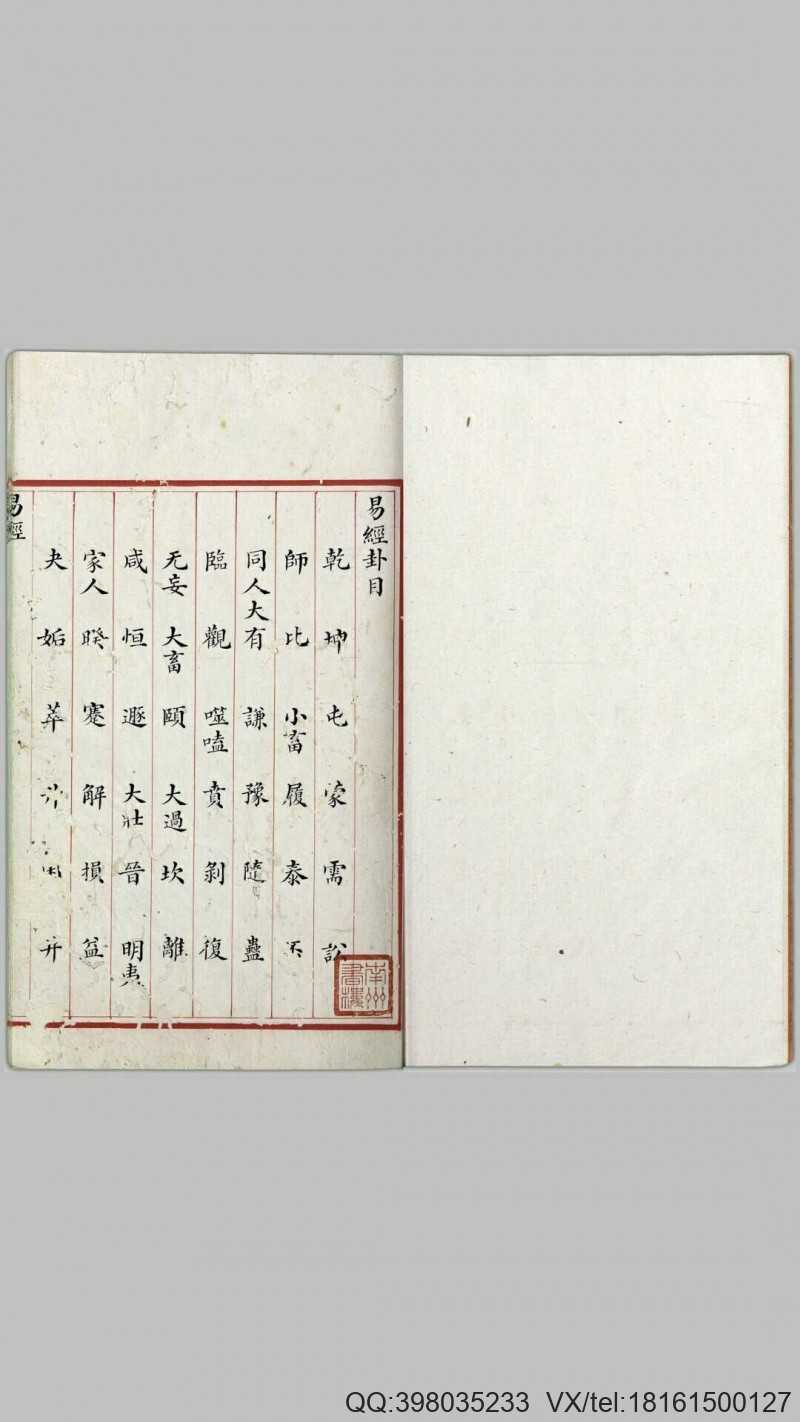 易經卦目
乾 坤 屯 蒙 需 訟
師 比 小畜 履 泰 否
同人 大有 謙 豫 隨 蠱
臨 觀 噬嗑 賁 剝 復
无妄 大畜 頤 大過 坎 離
咸 恒 遯 大壯 晉 明夷
家人 睽 蹇 解 損 益
夬 姤 萃 升 困 井
易經
南州書樓
QQ:398035233 VX/tel:18161500127